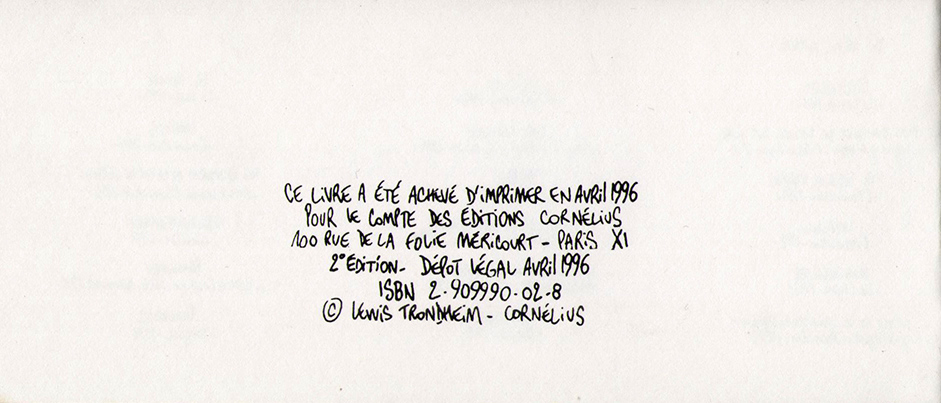 CE LIVRE A ÉTÉ ACHEVÉ D'IMPRIMER EN AVRIL 1996
POUR LE COMPTE DES ÉDITIONS CORNÉLIUS
100 RUE DE LA FOLIE MÉRICOURT - PARIS XI
2° ÉDITION - DÉPOT LÉGAL AVRIL 1996
ISBN 2.909990.02-8
© LEWIS TRONDHEIM - CORNÉLIUS